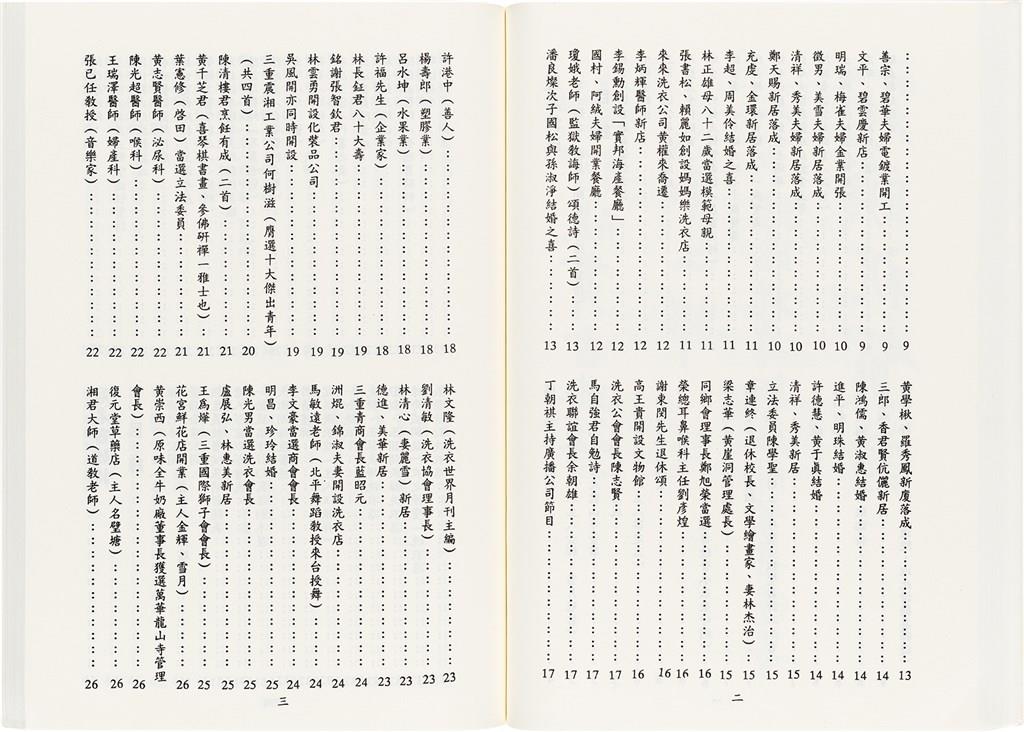 ：：：：：：：：：：：：9
善宗、碧華夫婦電鍍業開工：：：：：9
文平、碧雲慶新店：：：：：：：9
明瑞、梅雀夫婦金業開張：：：：：10
微男、美雪夫婦新居落成：：：：：10
清祥、秀美夫婦新居落成：：：：：10
鄭天賜新居落成：：：：：：：10
充虔、金環新居落成：：：：：：11
李超、周美伶結婚之喜：：：：：：11
林正雄母八十二歲當選模範母親：：：：11
張書松、賴麗如創設媽媽樂洗衣店：：：11
來來洗衣公司黃權來喬遷：：：：：12
李炳輝醫師新店：：：：：：：12
李錫勳創設「寶邦海產餐廳」：：：：12
國村、阿絨夫婦開業餐廳：：：：：12
瓊娥老師（監獄教誨師）頌德詩（二首）：13
潘良燦次子國松與孫淑淨結婚之喜：：：13
黃學楸、羅秀鳳新廈落成：：：：：13
三郎、香君賢伉儷新居：：：：：：14
陳鴻儒、黃淑惠結婚：：：：：：14
進平、明珠結婚：：：：：：：14
許德慧、黃于真結婚：：：：：：14
清祥、秀美新居：：：：：：：15
立法委員陳學聖：：：：：：：15
章連終（退休校長、文學繪畫家、妻林杰治）：15
梁志華（黃崖洞管理處長）：：：：：15
同鄉會理事長鄭旭榮當選：：：：：16
榮總耳鼻喉科主任劉彥煌：：：：：16
謝東閔先生退休頌：：：：：：：16
高王貴開設文物館：：：：：：：16
洗衣公會會長陳志賢：：：：：：17
馬自強君自勉詩：：：：：：：17
洗衣聯誼會長余朝雄：：：：：：17
丁朝祺主持廣播公司節目：：：：：17
二
許港中（善人）：：：：：：：18
楊壽郎（塑膠業）：：：：：：：18
呂水坤（水果業）：：：：：：：18
許福先生（企業家）：：：：：：18
林長鉦君八十大壽：：：：：：：19
銘謝張智欽君：：：：：：：：19
林雲勇開設化裝品公司：：：：：：19
吳風開亦同時開設：：：：：：：19
三重震湘工業公司何樹滋（膺選十大傑出青年）
（共四首）：：：：：：：：：20
陳清樓君烹飪有成（二首）：：：：：21
黃千芝君（喜琴棋書畫、參佛研禪一雅士也）：21
葉憲修（啓田）當選立法委員：：：：21
黃志賢醫師（泌尿科）：：：：：：22
陳光超醫師（喉科）：：：：：：22
王瑞澤醫師（婦產科）：：：：：：22
張己任教授（音樂家）：：：：：：22
林文隆（洗衣世界月刊主編）：：：：23
劉清敏（洗衣協會理事長）：：：：：23
林清心（妻麗雪）新居：：：：：：23
德進、美華新居：：：：：：：23
三重青商會長藍昭元：：：：：：24
洲焜、錦淑夫妻開設洗衣店：：：：：24
馬敏遠老師（北平舞蹈教授來台授舞）：：24
李文豪當選商會會長：：：：：：24
明昌、珍玲結婚：：：：：：：25
陳光男當選洗衣會長：：：：：：25
盧展弘、林惠美新居：：：：：：25
王為燦（三重國際獅子會會長）：：：：25
花宮鮮花店開業（主人金輝、雪月）：：：26
黃崇西（原味全牛奶廠董事長獲選萬華龍山寺管理
會長）：：：：：：：：：：26
復元堂草藥店（主人名壁塘）：：：：26
湘君大師（道教老師）：：：：：：26
三